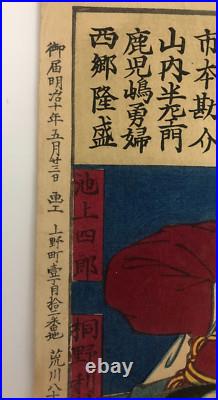 市本勘介
山内半左エ門
鹿児嶋勇婦
西郷隆盛
桐野利
池上四郎
御届明治十年五月廿三日 画工 上野町壹丁目拾二番地 荒川八十